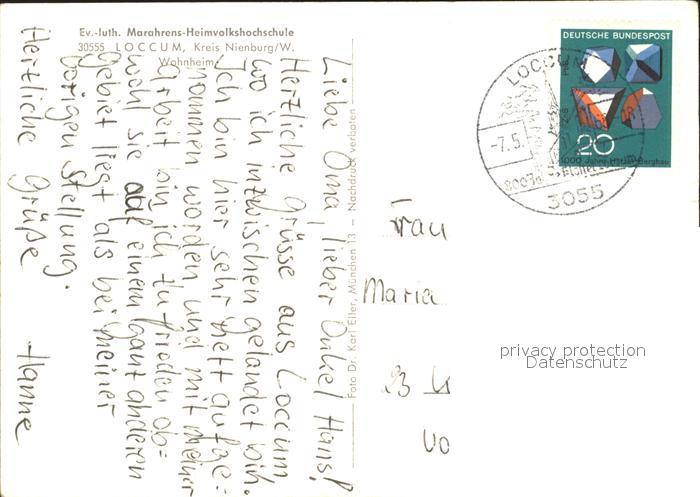 Ev.-luth. Marahrens-Heimvolkshochschule
30555 LOCCUM, Kreis Nienburg/W.
Wohnheim
Liebe Oma, lieber Onkel Hans!
Herzliche Grüsse aus Loccum
wo ich inzwischen gelandet bin.
Ich bin hier sehr nett aufge-
nommen worden und mit meiner
Arbeit bin ich zufrieden ob=
wohl sie auf einem ganz anderen
Gebiet liegt als bei meiner
vorigen Stellung.
Herzliche Grüße Hanne
Foto Dr. Karl Eller, München 13 — Nachdruck verboten
DEUTSCHE BUNDESPOST
20
1000 Jahre Harzer Bergbau
LOCCUM
-7.5.
3055
Frau
Maria
privacy protection
Datenschutz